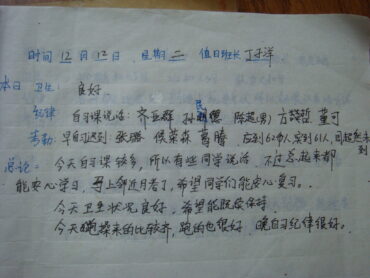 时间 12月12日 星期 二 值日班长 丁子洋
本日 卫生: 良好.
纪律 自习课说话: 齐亚群 孙民 陈超男) 方晓哲 董可
考勤 早自习迟到: 张璐 侯荣森 葛腾 应到62人,实到61人,
总论: 今天自习课较多,所以有些同学说话,不过总起来都
能安心学习,马上邻近月考了,希望同学们能安心复习。
今天卫生状况良好,希望能继续保持.
今天跑操来的比较齐,跑的也很好,晚自习纪律很好。